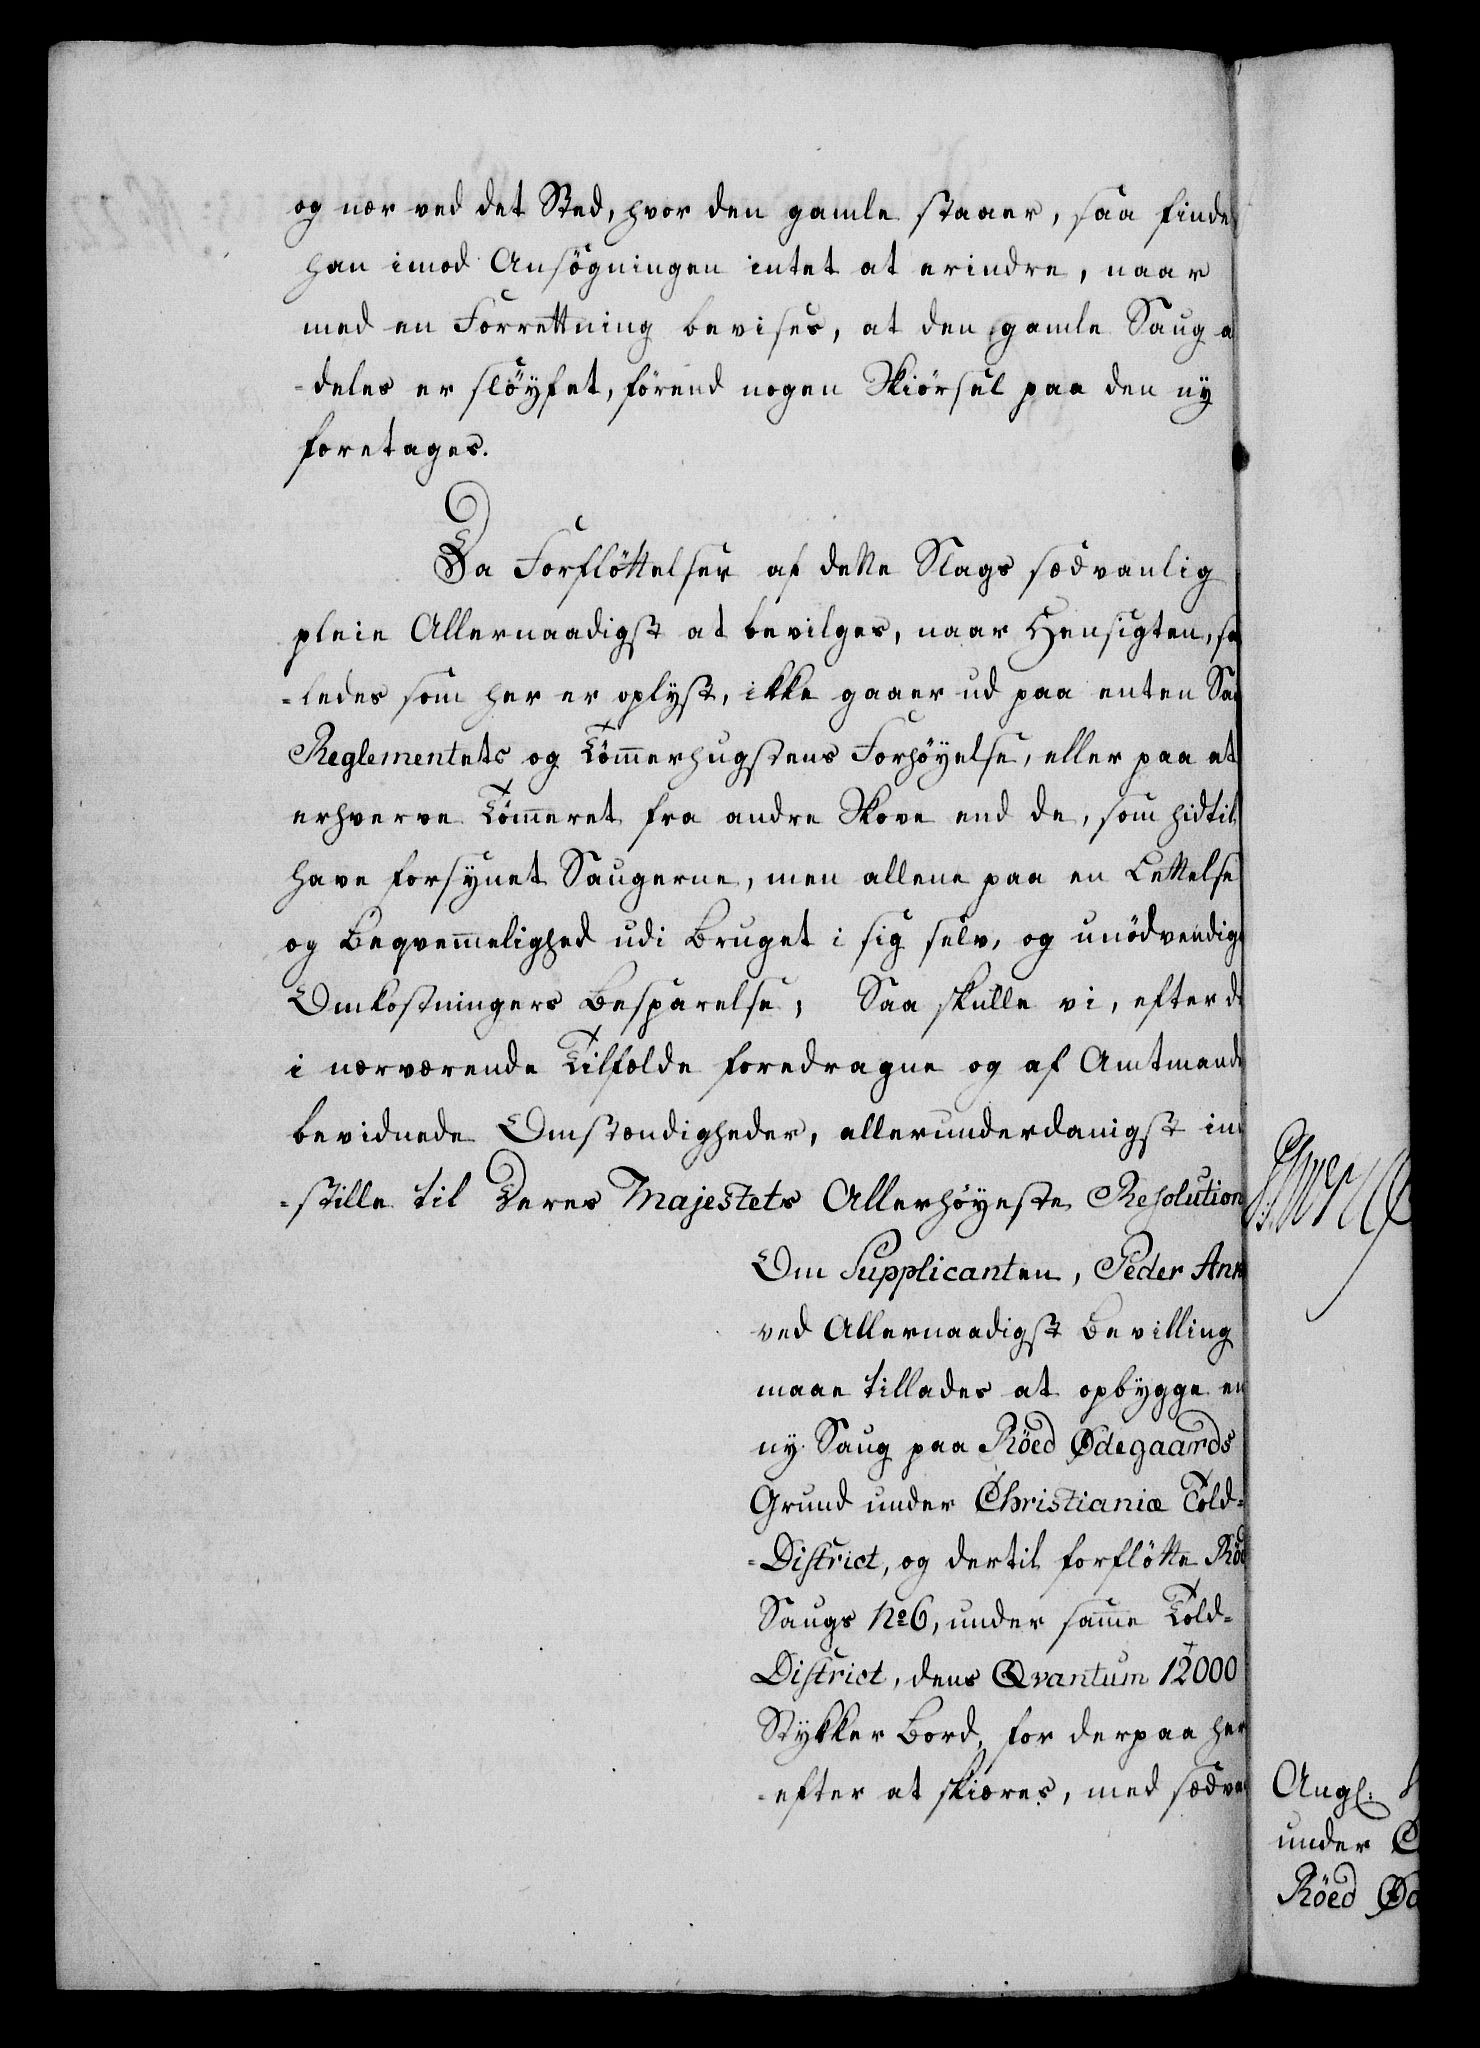 og nær ved det Sted, hvor den gamle staaer, saa finde
han imod Ansögningen intet at erindre, naar
med en Forrettning bevises, at den gamle Saug a
-deles er slöyfet, förend nogen Skiörsel paa den ny
foretages.
Da Forflöttelser af dette Slags sædvanlig
pleie Allernaadigst at bevilges, naar Hensigten, sa
-ledes som her er oplyst, ikke gaaer ud paa enten Sau
Reglementets og Tömmerhugstens Forhöyelse, eller paa at
erhverve Tömeret fra andre Skove end de, som hidtil
have forsynet Saugerne, men allene paa en Lettelse
og Beqvemmelighed udi Bruget i sig selv, og unödvendige
Omkostningers Besparelse; Saa skulle vi, efter d
i nærværende Tilfælde foredragne og af Amtmande
bevidnede Omstændigheder, allerunderdanigst in
-stille til Deres Majestets Allerhöyeste Resolution
Om Supplicanten, Peder An
ved Allernaadigst Bevilling
maae tillades at opbygge en
ny Saug paa Röed Ödegaards
Grund under Christianiæ Told-
-District, og dertil forflötte Röe
Saugs No 6, under samme Told-
District, dens Qvantum 12000
Stykker Bord, for derpaa her
-efter at skiæres, med sædva
Angl:
under
Röed